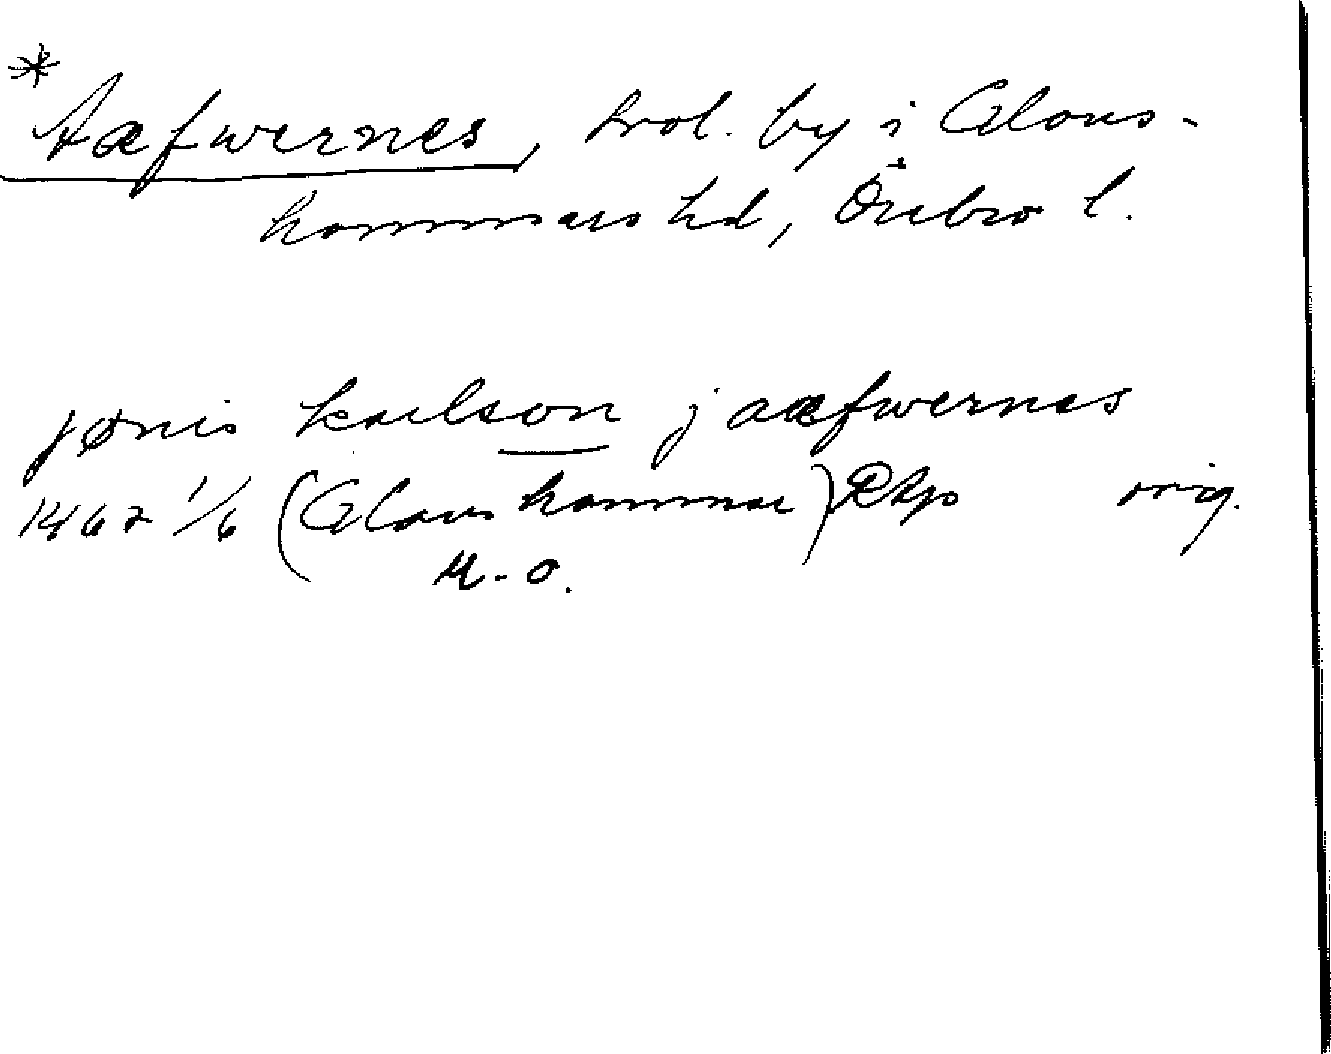 * Aæfwernes, trol. by i Glans-
hammars hd, Örebro l.
jønis karlson j aæfwernes
1462 1/6 (Glanshammar) Rkp orig.
M-o.